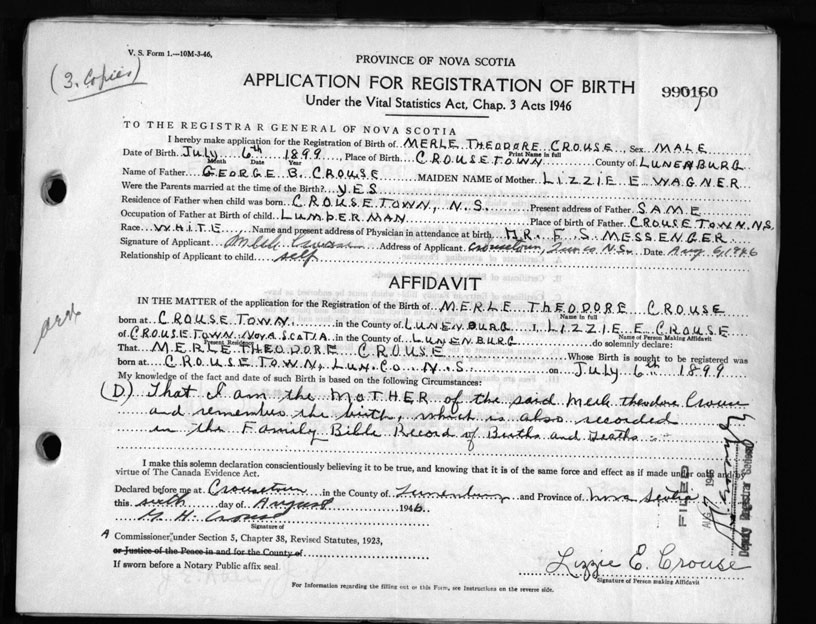 V. S. Form 1.—10M-3-46.
(3. Copies)
PROVINCE OF NOVA SCOTIA
APPLICATION FOR REGISTRATION OF BIRTH
990160
Under the Vital Statistics Act, Chap. 3 Acts 1946
TO THE REGISTRAR GENERAL OF NOVA SCOTIA
I hereby make application for the Registration of Birth of MERLE THEODORE CROUSE Sex MALE
Print Name in full
Date of Birth July 6th 1899, Place of Birth CROUSETOWN County of LUNENBURG
Month Date Year
Name of Father GEORGE B. CROUSE MAIDEN NAME of Mother LIZZIE E WAGNER
Were the Parents married at the time of the Birth? YES
Residence of Father when child was born CROUSETOWN, N.S. Present address of Father SAME
Occupation of Father at Birth of child LUMBERMAN Place of birth of Father CROUSETOWN N.S.
Race WHITE Name and present address of Physician in attendance at birth DR. F. S. MESSENGER
Signature of Applicant Merle Crouse Address of Applicant Crousetown, N.S. Date Aug 6, 1946
Relationship of Applicant to child self
AFFIDAVIT
IN THE MATTER of the application for the Registration of the Birth of MERLE THEODORE CROUSE
Name in full
born at CROUSETOWN in the County of LUNENBURG I, LIZZIE E CROUSE
Name of Person Making Affidavit
of CROUSETOWN NOVA SCOTIA in the County of LUNENBURG do solemnly declare:
Present Residence
That MERLE THEODORE CROUSE Whose Birth is sought to be registered was
born at CROUSETOWN, LUN. CO. N.S. on July 6th 1899
My knowledge of the fact and date of such Birth is based on the following Circumstances:
(D) That I am the MOTHER of the said Merle Theodore Crouse
and remember the birth, which is also recorded
in the Family Bible Record of Births and Deaths
I make this solemn declaration conscientiously believing it to be true, and knowing that it is of the same force and effect as if made under oath and by
virtue of The Canada Evidence Act.
Declared before me at Crousetown in the County of Lunenburg and Province of Nova Scotia
this sixth day of August 1946.
H. Crouse
Signature of
A Commissioner, under Section 5, Chapter 38, Revised Statutes, 1923,
or Justice of the Peace in and for the County of
If sworn before a Notary Public affix seal.
Lizzie E. Crouse
Signature of Person making Affidavit
For Information regarding the filling out or this Form, see Instructions on the reverse side.
FILED
1946
Deputy Registrar General